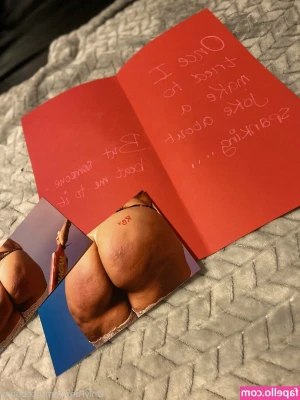 Once I
tried to
make a
Joke about
spanking....
But someone
beat me to it
fapello.com